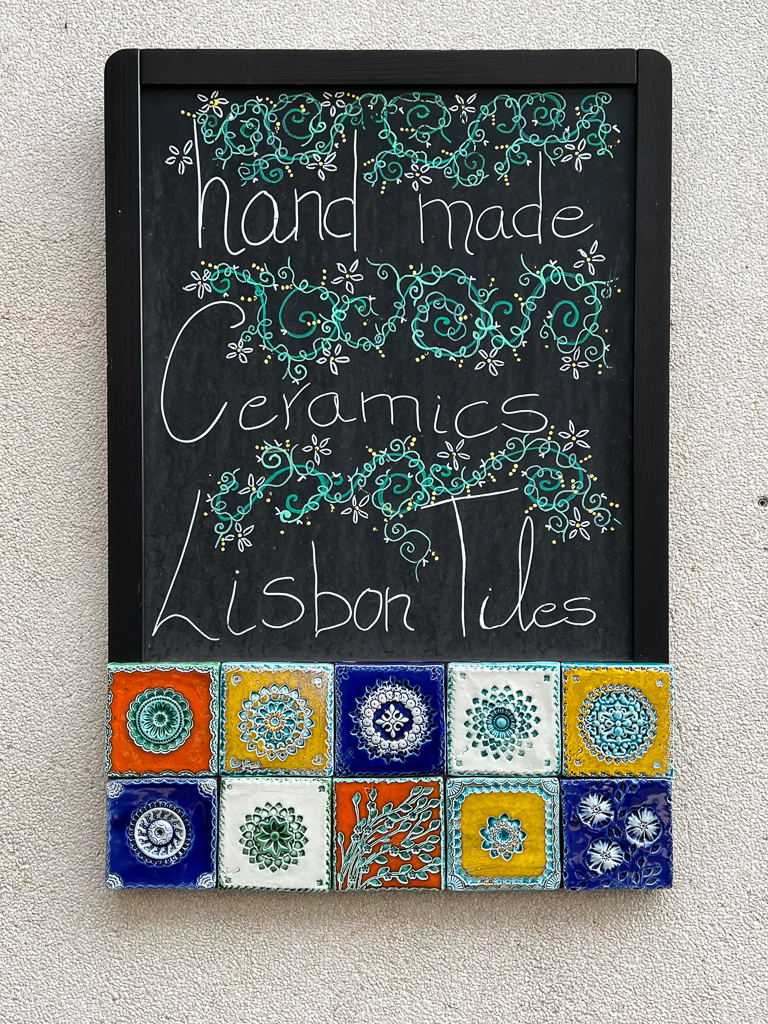 hand made
Ceramics
Lisbon Tiles